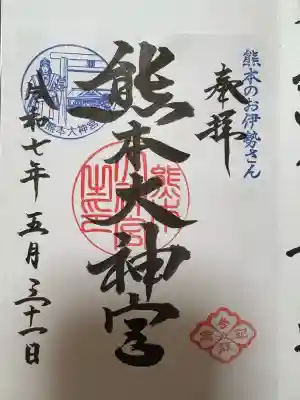 熊本のお伊勢さん
奉拝
熊本大神宮
熊本大神宮
令和七年五月三十一日